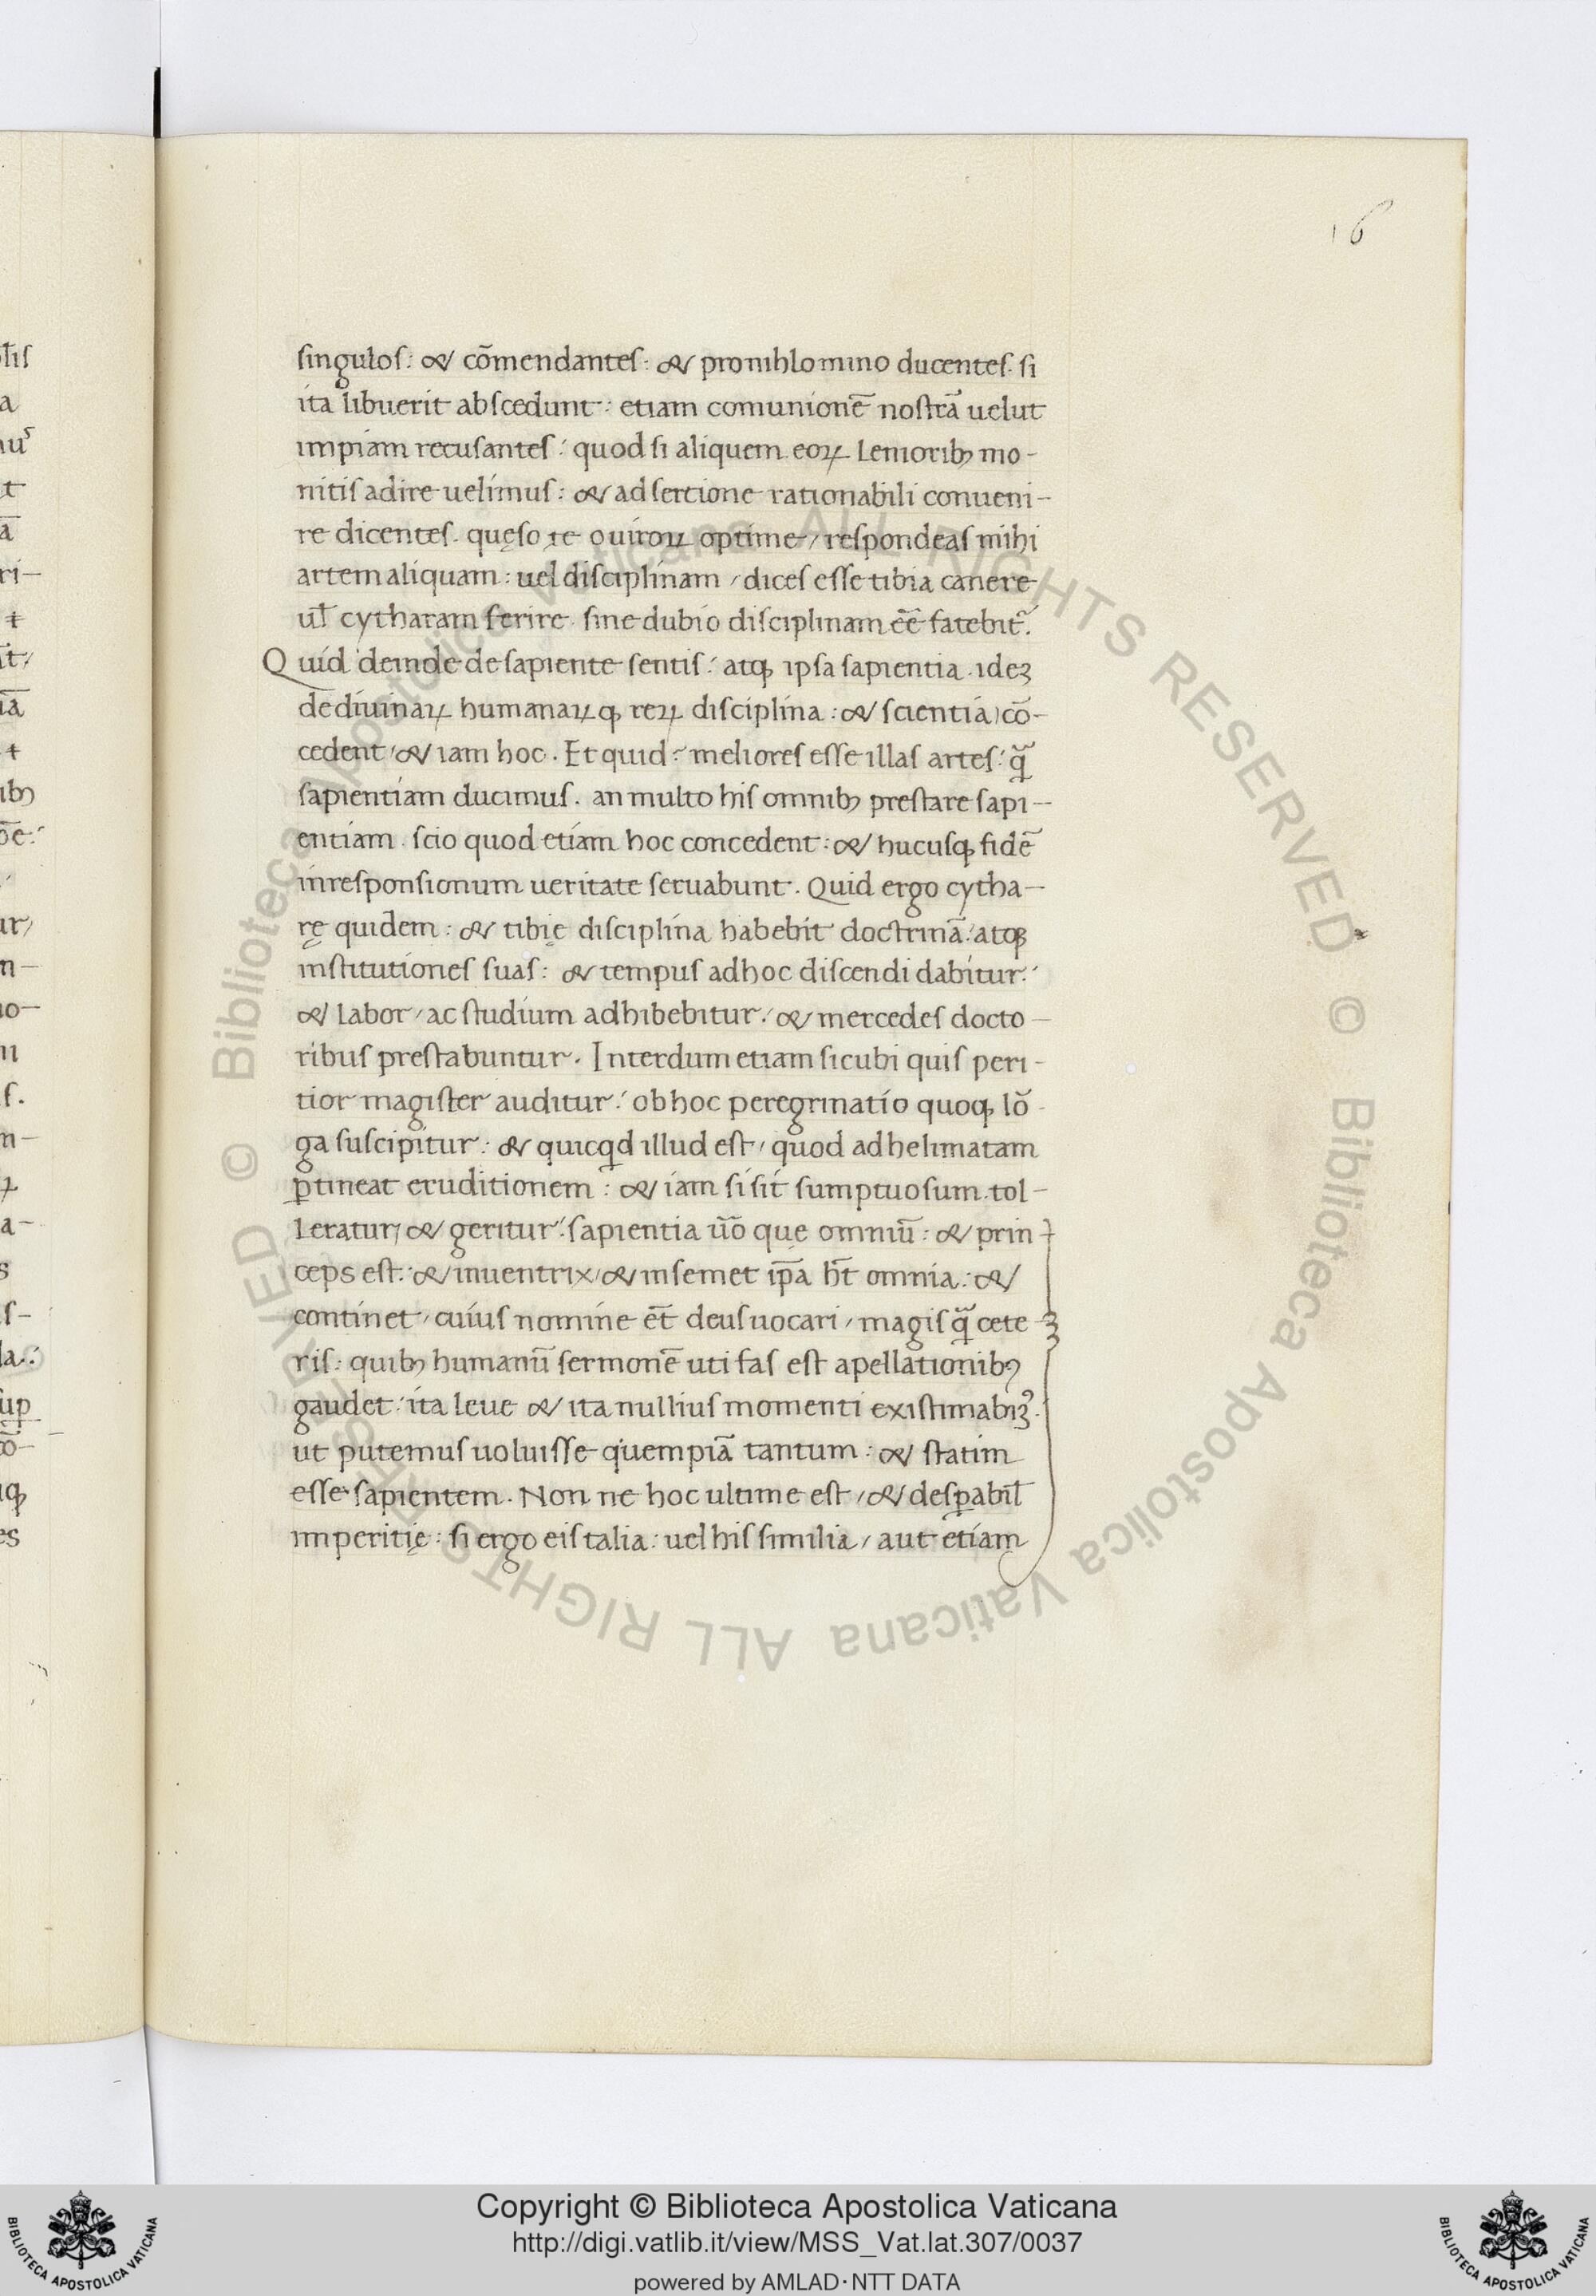 16
singulos: & cõmendantes: & pronihlomino ducentes. si
ita libuerit abscedunt: etiam comunionẽ nostrã uelut
impiam recusantes: quod si aliquem eoꝝ Leniorib᷒ mo-
nitis adire uelimus: & adsertione rationabili conueni-
re dicentes. quęso te o uiroꝝ optime, respondeas mihi
artem aliquam: uel disciplinam, dices esse tibia canere
ul̃ cytharam ferire. sine dubio disciplinam eẽ fatebit̃.
Quid deinde de sapiente sentis: atqꝫ ipsa sapientia. ideꝫ
de diuinaꝝ humanaꝝqꝫ reꝝ disciplina: & scientia, cõ-
cedent, & iam hoc. Et quid: meliores esse illas artes: q̃
sapientiam ducimus. an multo his omnib᷒ prestare sapi-
entiam. scio quod etiam hoc concedent: & hucusqꝫ fidẽ
in responsionum ueritate seruabunt. Quid ergo cytha-
rę quidem: & tibię disciplina habebit doctrinã: atqꝫ
institutiones suas: & tempus adhoc discendi dabitur:
& Labor, ac studium adhibebitur: & mercedes docto-
ribus prestabuntur. Interdum etiam sicubi quis peri-
tior magister auditur: ob hoc peregrinatio quoqꝫ lõ-
ga suscipitur: & quicqd illud est, quod adhelimatam
ꝑtineat eruditionem: & iam si sit sumptuosum. tol-
Leratur, & geritur: sapientia uõ quę omniũ: & prin-
ceps est: & inuentrix, & insemet ip̃a ht̃ omnia: &
continet, cuius nomine et̃ deus uocari, magis q̃ cete
ris: quib᷒ humanũ sermonẽ uti fas est apellationib᷒
gaudet: ita leue & ita nullius momenti existimabiꝫ᷒.
ut putemus uoluisse quempiã tantum: & statim
esse sapientem. Non ne hoc ultime est, & desꝑabil̃
imperitię: si ergo eis talia: uel his similia, aut etiam
Copyright © Biblioteca Apostolica Vaticana
http://digi.vatlib.it/view/MSS_Vat.lat.307/0037
powered by AMLAD·NTT DATA
© Biblioteca Apostolica Vaticana ALL RIGHTS RESERVED © Biblioteca Apostolica Vaticana ALL RIGHTS RESERVED
BIBLIOTECA APOSTOLICA VATICANA
BIBLIOTECA APOSTOLICA VATICANA